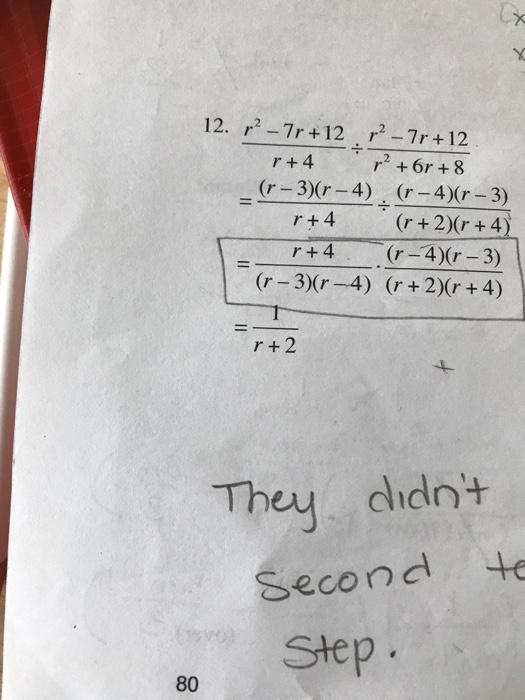 12. r² – 7r + 12 / r + 4 ÷ r² – 7r + 12 / r² + 6r + 8
= (r – 3)(r – 4) / r + 4 ÷ (r – 4)(r – 3) / (r + 2)(r + 4)
= r + 4 / (r – 3)(r – 4) · (r – 4)(r – 3) / (r + 2)(r + 4)
= 1 / r + 2
They didn't
second
step.
80